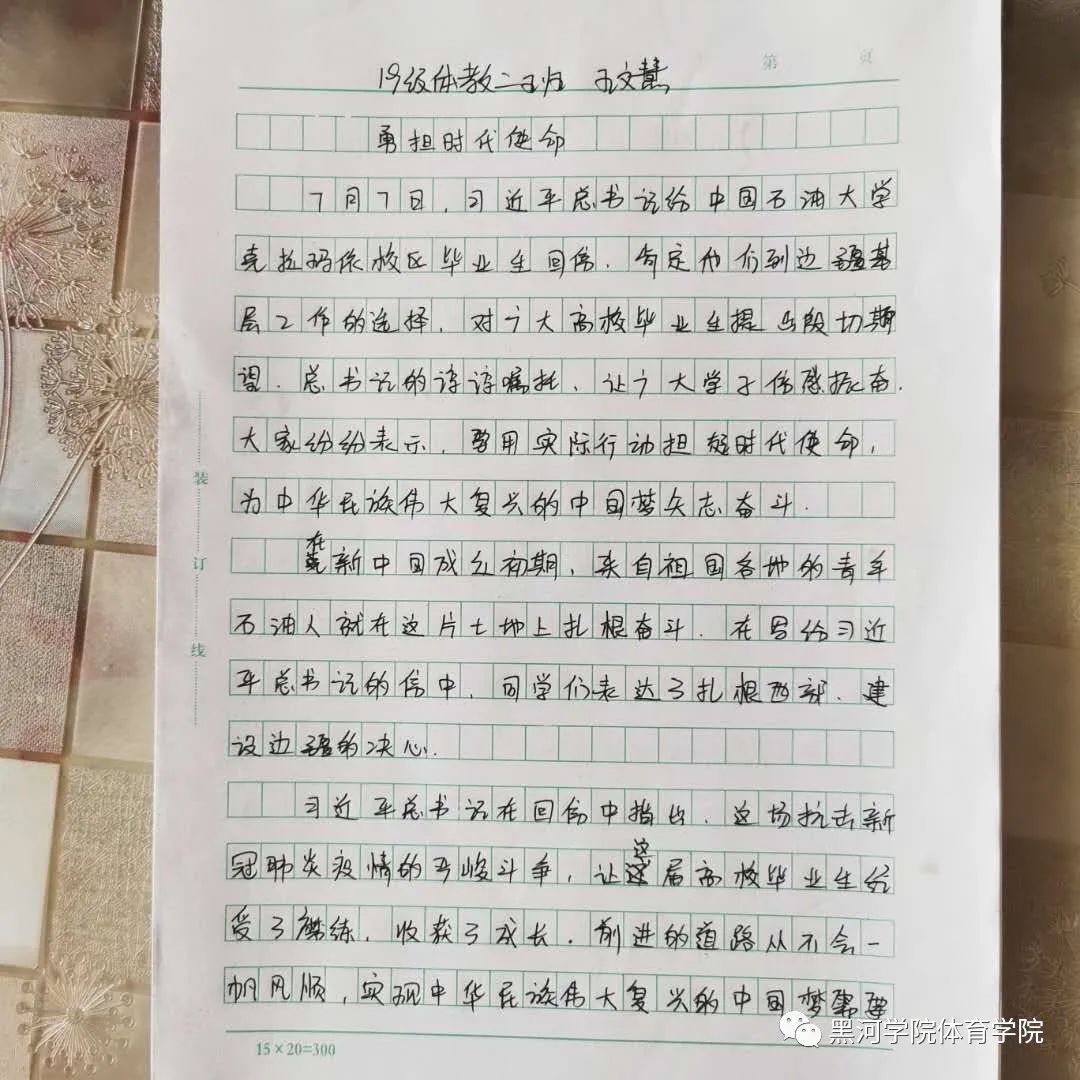 第 页
19级体教二班 王文慧
勇担时代使命
7月7日,习近平总书记给中国石油大学
克拉玛依校区毕业生回信,肯定他们到边疆基
层工作的选择,对广大高校毕业生提出殷切期
望.总书记的谆谆嘱托,让广大学子倍感振奋.
大家纷纷表示,要用实际行动担起时代使命,
为中华民族伟大复兴的中国梦矢志奋斗.
在新中国成立初期,来自祖国各地的青年
石油人就在这片土地上扎根奋斗.在写给习近
平总书记的信中,同学们表达了扎根西部、建
设边疆的决心.
习近平总书记在回信中指出,这场抗击新
冠肺炎疫情的严峻斗争,让这届高校毕业生经
受了磨练,收获了成长.前进的道路从不会一
帆风顺,实现中华民族伟大复兴的中国梦需要
装
订
线
15×20=300
黑河学院体育学院